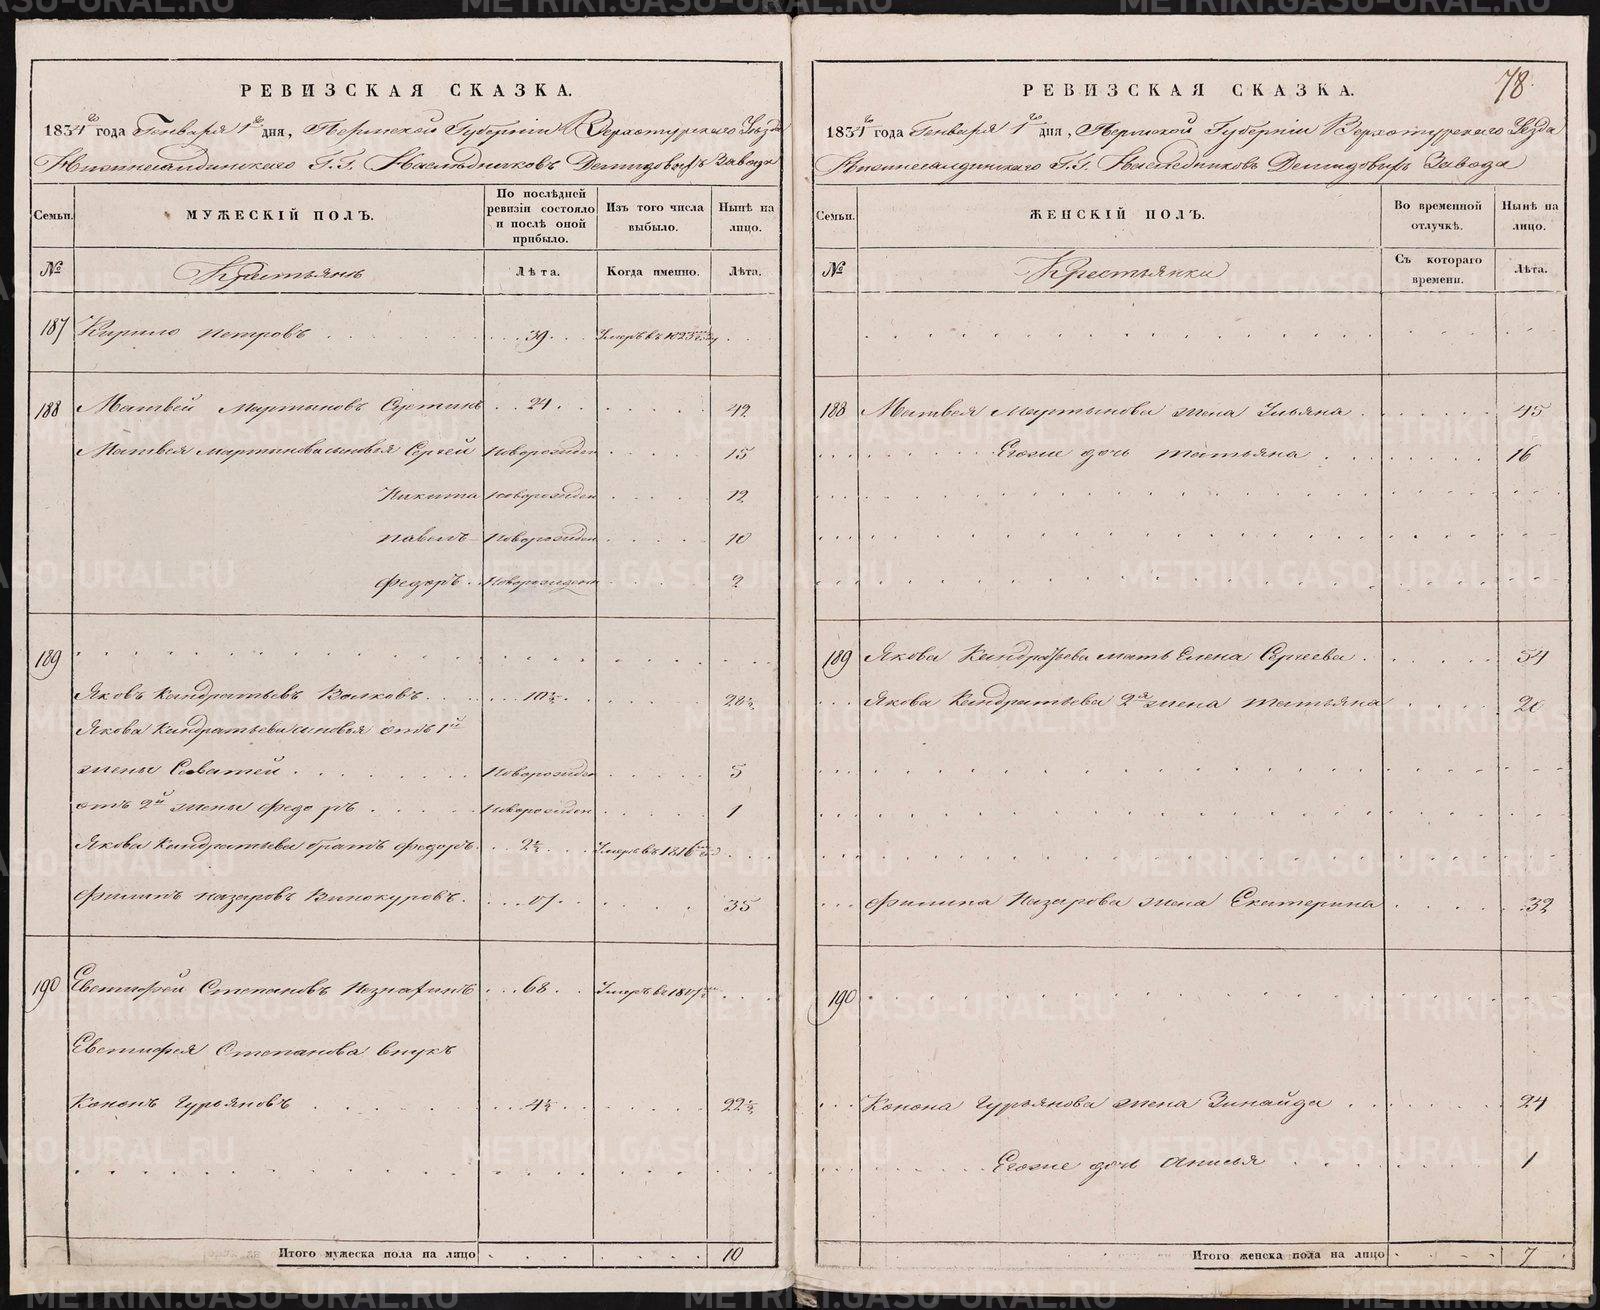 РЕВИЗСКАЯ СКАЗКА.
1834го года Генваря 1го дня, Пермской Губернии Верхотурского Уезда
Нижнесалдинского Г.Г. Наследниковъ Демидовыхъ Завода
Семьи.
МУЖЕСКІЙ ПОЛЪ.
По послѣдней ревизіи состояло и послѣ оной прибыло.
Изъ того числа выбыло.
Нынѣ на лицо.
№
Крестьянъ
Лѣта.
Когда именно.
Лѣта.
187 Кирило петровъ 39 Умеръ въ 1825
188 Матвей Мартыновъ 24 42
Матвея Мартинова сыновья Сергей Новорожден 15
Никита новорожден 12
павелъ Новорожден 10
федоръ Новорожден 2
189
Яковъ Кандратьевъ Волковъ 10½ 28½
Якова Кандратьева сыновья отъ 1й
жены Саватей Новорожден 5
отъ 2й жены федоръ Новорожден 1
Якова Кандратьева братъ федоръ 2½ Умеръ въ 1816
Филипъ назаровъ Винокуровъ 17 35
190 Евтифей Степановъ 68 Умеръ въ 1817
Евтифея Степанова внукъ
Кононъ Гурьяновъ 4½ 22½
Итого мужеска пола на лицо 10
78
РЕВИЗСКАЯ СКАЗКА.
1834го года Генваря 1го дня, Пермской Губерніи Верхотурского Уезда
Нижнесалдинского Г.Г. Наследниковъ Демидовыхъ Завода
Семьи.
ЖЕНСКІЙ ПОЛЪ.
Во временной отлучкѣ.
Нынѣ на лицо.
№
Крестьянки
Съ котораго времени.
Лѣта.
188 Матвея Мартынова жена Ульяна 45
Егоже дочь татьяна 16
189 Якова Кандратьева мать Елена Сергеева 54
Якова Кандратьева 2я жена татьяна 20
Филипа Назарова жена Екатерина 32
190
Конона Гурьянова жена Зинаида 24
Егоже дочь Анисья 1
Итого женска пола на лицо 7